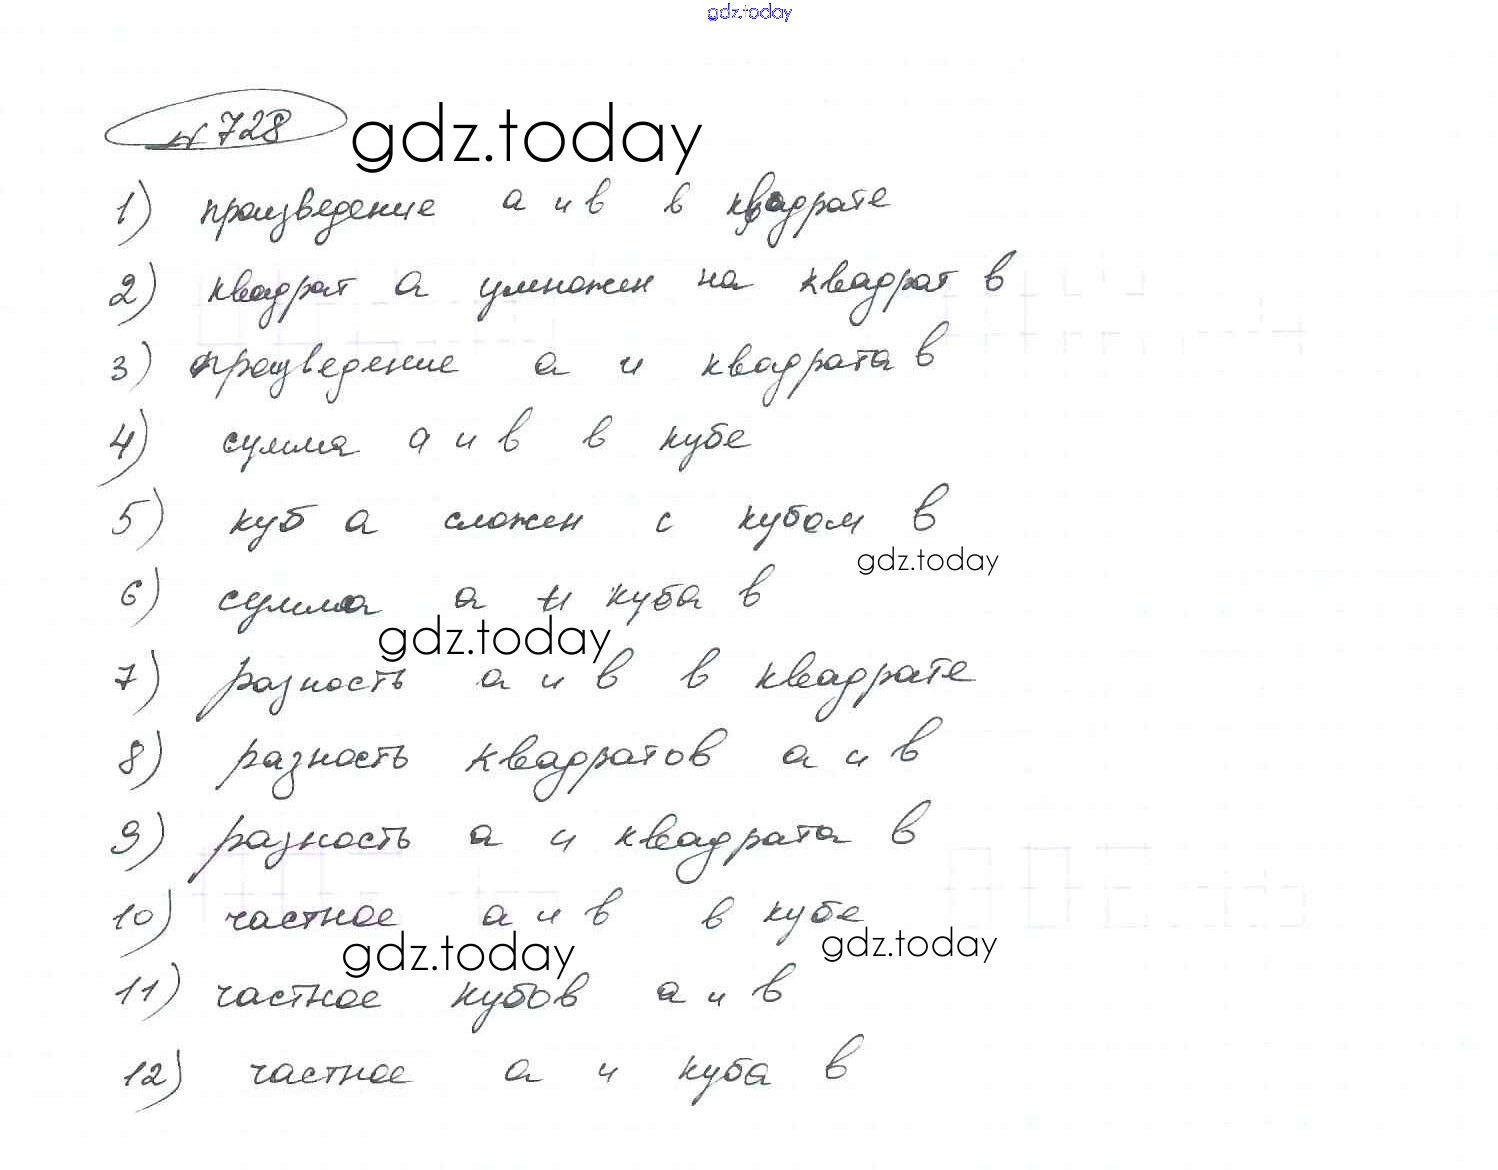 gdz.today
№ 728 gdz.today
1) произведение а и в в квадрате
2) квадрат а умножен на квадрат в
3) произведение а и квадрата в
4) сумма а и в в кубе
5) куб а сложен с кубом в
gdz.today
6) сумма а и куба в
gdz.today
7) разность а и в в квадрате
8) разность квадратов а и в
9) разность а и квадрата в
10) частное а и в в кубе
gdz.today gdz.today
11) частное кубов а и в
12) частное а и куба в